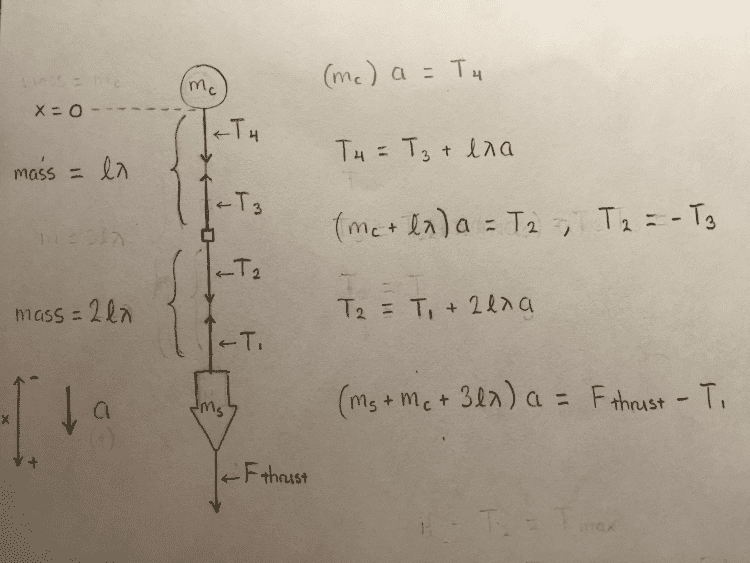 m_c
x = 0
mass = lλ
←T₄
←T₃
←T₂
mass = 2lλ
←T₁
m_s
x
-
+
a
←F thrust
(m_c) a = T₄
T₄ = T₃ + lλa
(m_c + lλ) a = T₂ , T₂ = - T₃
T₂ = T₁ + 2lλa
(m_s + m_c + 3lλ) a = F thrust - T₁